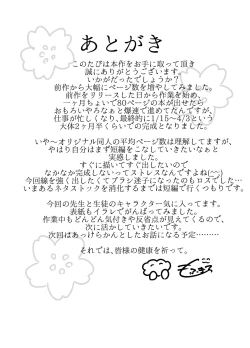 あとがき
このたびは本作をお手に取って頂き
誠にありがとうございます。
いかがだったでしょうか？
前作から大幅にページ数を増やしてみました。
前作をリリースした日から作業を始め、
一ヶ月ちょいで80ページの本が出せたら
おもろいやろなぁと爆速で進めてたんですが、
仕事が忙しくなり、最終的に1/15〜4/3という
大体2ヶ月半くらいでの完成となりました。
いや〜オリジナル同人の平均ページ数は理解してますが、
やはり自分はまず短編をこなしていきたいなぁと
実感しました。
すぐに描いて出したいしので
なかなか完成しないってストレスなんですよね(〜;)
今回線を強く出したくてブラシ迷子になったのもロスでした…
いまあるネタストックを消化するまでは短編で行くつもりです。
今回の先生と生徒のキャラクター気に入ってます。
表紙もイラレでがんばってみました。
作業中もどんどん気付きや反省点が見えてくるので、
次に活かしていきたいです。
次回はあっけらかんとしたお話になる予定………
それでは、皆様の健康を祈って。